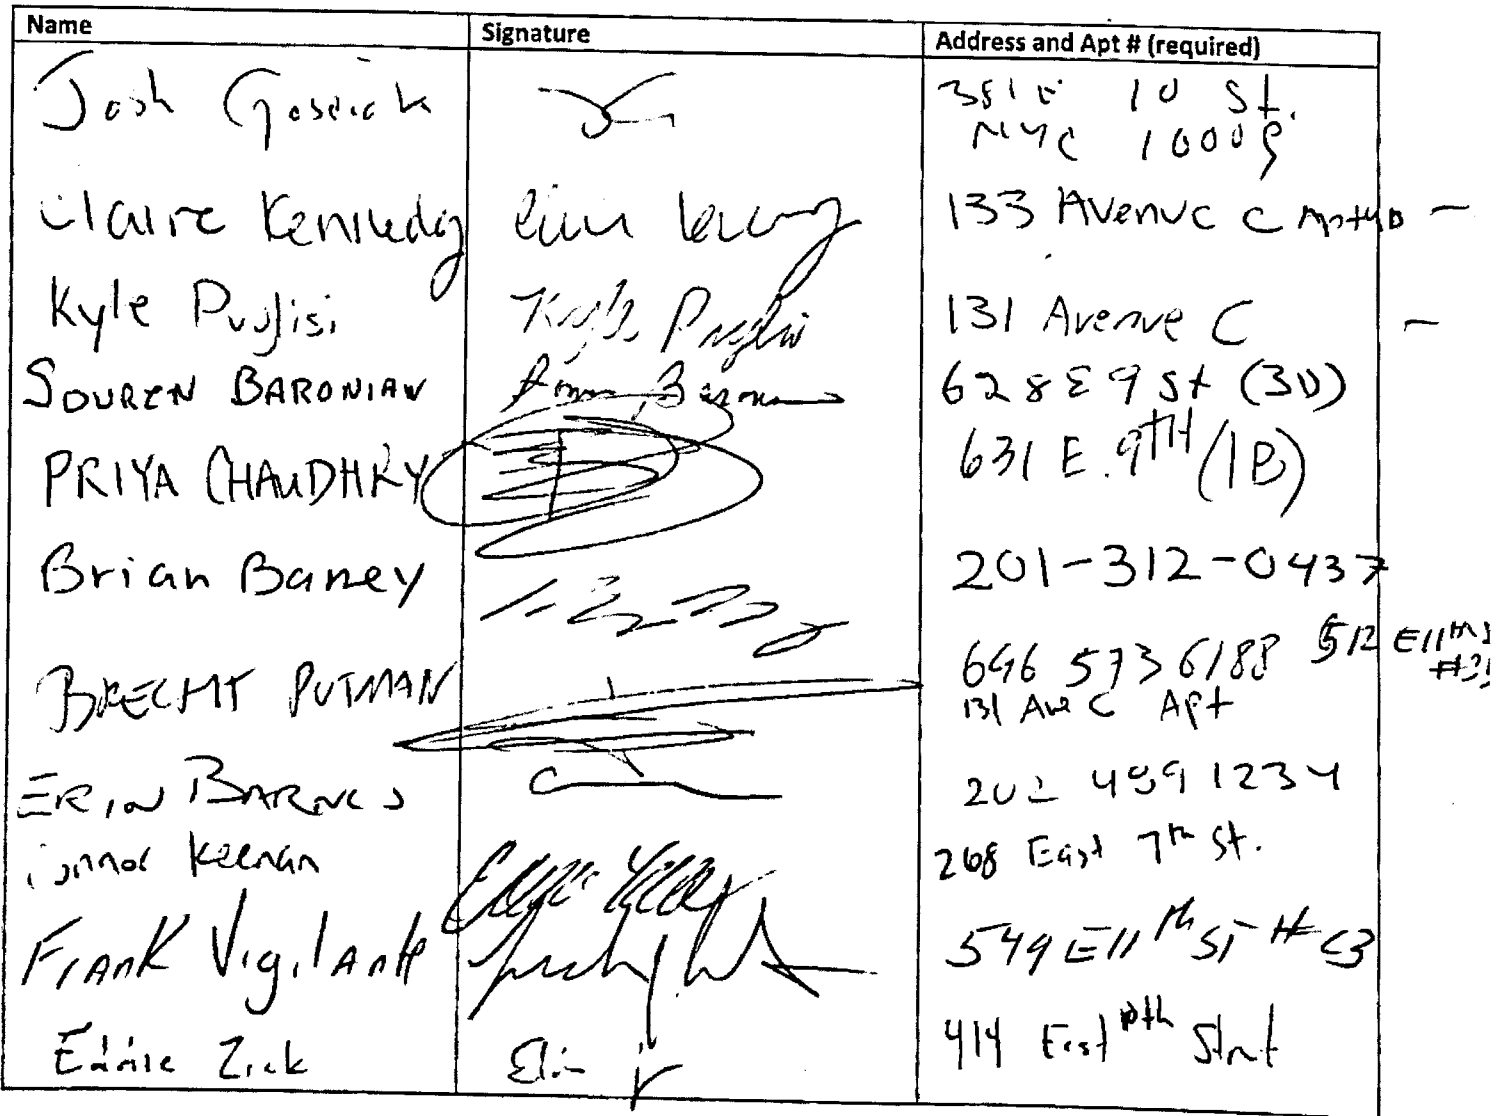 Name Signature Address and Apt # (required)
Josh 10 St.
NYC 10009
Claire Kennedy 133 Avenue C Apt 4D –
Kyle Puglisi Kyle Puglisi 131 Avenue C –
SOUREN BARONIAN 628 E 9 St (3D)
PRIYA CHAUDHRY 631 E. 9TH (1B)
Brian Baney 201-312-0437
512 E 11th
BRECHT PUTMAN 646 573 6188
131 Ave C Apt
ERIN BARNES 202 489 1234
Connor Keenan 268 East 7th St.
Frank Vigilante 549 E 11th ST # C3
Eddie Zick 414 East 10th Street